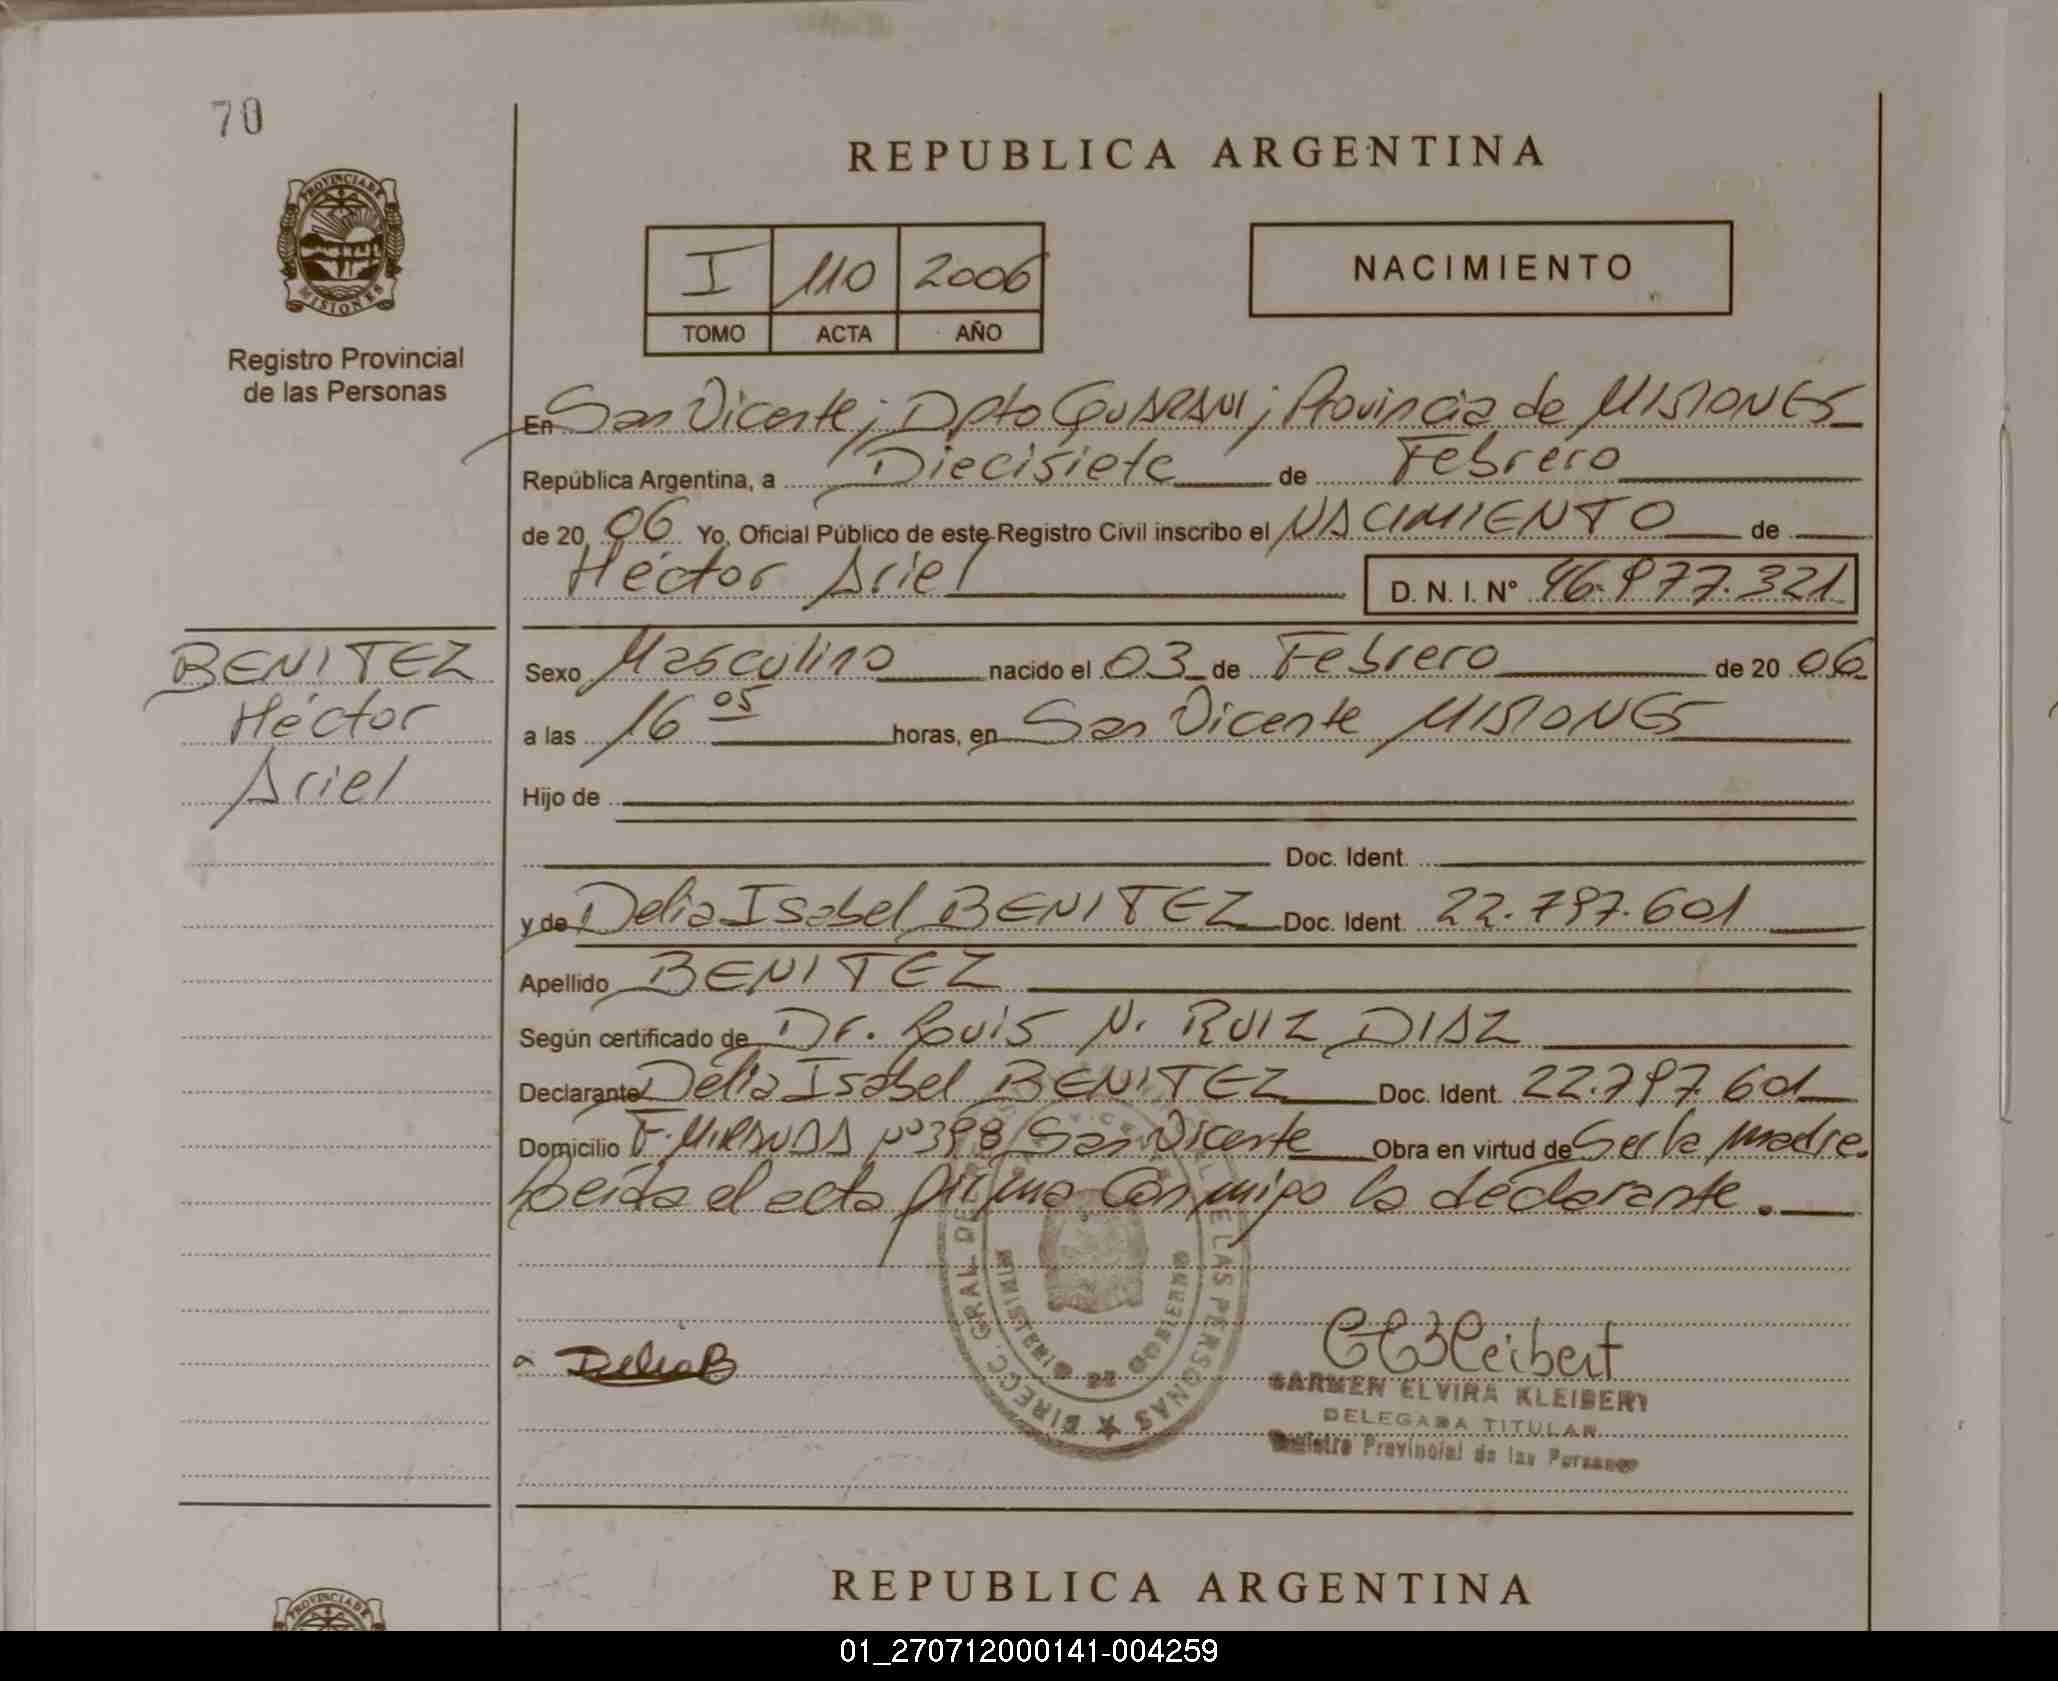 70
REPUBLICA ARGENTINA
PROVINCIA DE
MISIONES
Registro Provincial
de las Personas
I 110 2006
TOMO ACTA AÑO
NACIMIENTO
En San Vicente; Dpto GUARANI; Provincia de MISIONES
República Argentina, a Diecisiete de Febrero
de 20 06 Yo, Oficial Público de este Registro Civil inscribo el NACIMIENTO de
Héctor Ariel D. N. I. Nº 46.977.321
BENITEZ
Héctor
Ariel
Sexo Masculino nacido el 03 de Febrero de 20 06
a las 16 05 horas, en San Vicente MISIONES
Hijo de
Doc. Ident.
y de Delia Isabel BENITEZ Doc. Ident. 22.797.601
Apellido BENITEZ
Según certificado de Dr. Louis N. RUIZ DIAZ
Declarante Delia Isabel BENITEZ Doc. Ident. 22.797.601
Domicilio F. MIRANDA nº 398 San Vicente Obra en virtud de Ser la madre.
Leída el acta firma Conmigo la declarante.
DIRECC. GRAL. DE LAS PERSONAS
MINISTERIO DE GOBIERNO
Delia B
CEKleibert
CARMEN ELVIRA KLEIBERT
DELEGADA TITULAR
Registro Provincial de las Personas
REPUBLICA ARGENTINA
PROVINCIA DE
01_270712000141-004259